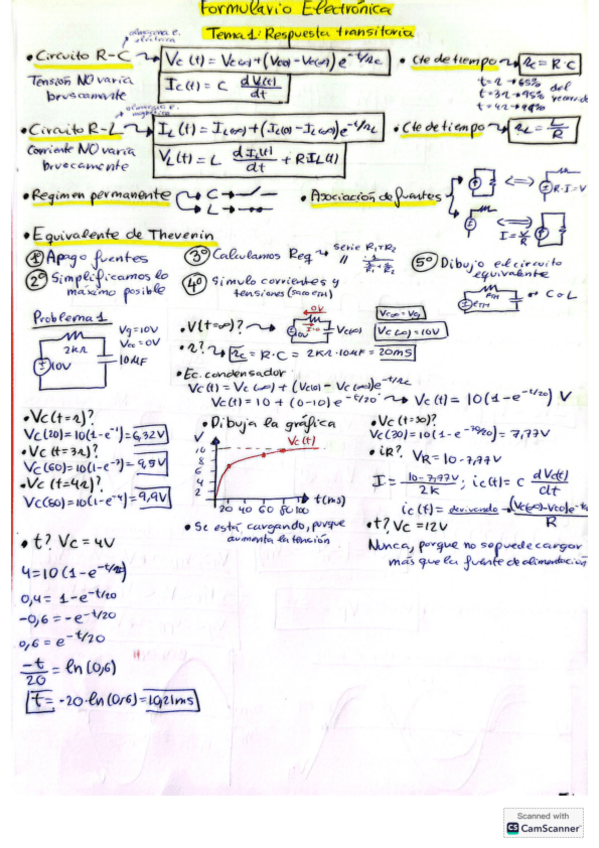 Formulario Electrónica
Tema 1: Respuesta transitoria
almacena e. eléctrica
• Circuito R-C → Vc(t) = Vc(∞) + (Vc(0) - Vc(∞)) e^-t/τc
Ic(t) = C dVc(t)/dt
Tensión NO varía bruscamente
• Cte de tiempo → τc = R·C
t=τ → 63%
t=3τ → 95%
t=4τ → 98%
del
almacena e. magnética
• Circuito R-L → IL(t) = IL(∞) + (IL(0) - IL(∞)) e^-t/τL
VL(t) = L dIL(t)/dt + R·IL(t)
Corriente NO varía bruscamente
• Cte de tiempo → τL = L/R
• Regimen permanente → C →
L →
• Asociación de fuentes
R·I=V
I = V/R
• Equivalente de Thevenin
1º Apago fuentes
2º Simplificamos lo máximo posible
3º Calculamos Req → serie R1+R2
//
4º Simulo corrientes y tensiones (saco ETH)
5º Dibujo el circuito equivalente
RTH
ETH
C o L
Problema 1
2KΩ
10V
Vg=10V
Vcc=0V
10μF
• V(t=∞)? →
0V
I=0
Vc(∞)
Vc∞=Vg
Vc(∞)=10V
• τ? → τc = R·C = 2KΩ·10μF = 20ms
• Ec. condensador
Vc(t) = Vc(∞) + (Vc(0) - Vc(∞)) e^-t/τc
Vc(t) = 10 + (0-10) e^-t/20 → Vc(t) = 10(1-e^-t/20) V
• Vc(t=τ)?
Vc(20)=10(1-e^-1)=6,32V
• Vc(t=3τ)?
Vc(60)=10(1-e^-3)=9,5V
• Vc(t=4τ)?
Vc(80)=10(1-e^-4)=9,9V
• Dibuja la gráfica
V
Vc(t)
10
8
6
4
2
20 40 60 80 100
t(ms)
• Se está cargando, porque aumenta la tensión
• Vc(t=30)?
Vc(30)=10(1-e^-30/20) = 7,77V
• iR? VR = 10-7,77V
I = 10-7,77V/2K ; ic(t) = C dVc(t)/dt
ic(t) = derivando → (Vc(∞)-Vc(0)) e^-t/τ / R
• t? Vc = 12V
Nunca, porque no se puede cargar más que la fuente de alimentación
• t? Vc = 4V
4=10(1-e^-t/20)
0,4 = 1-e^-t/20
-0,6 = -e^-t/20
0,6 = e^-t/20
-t/20 = ln(0,6)
t = -20·ln(0,6) = 10,21ms
Scanned with
CS CamScanner